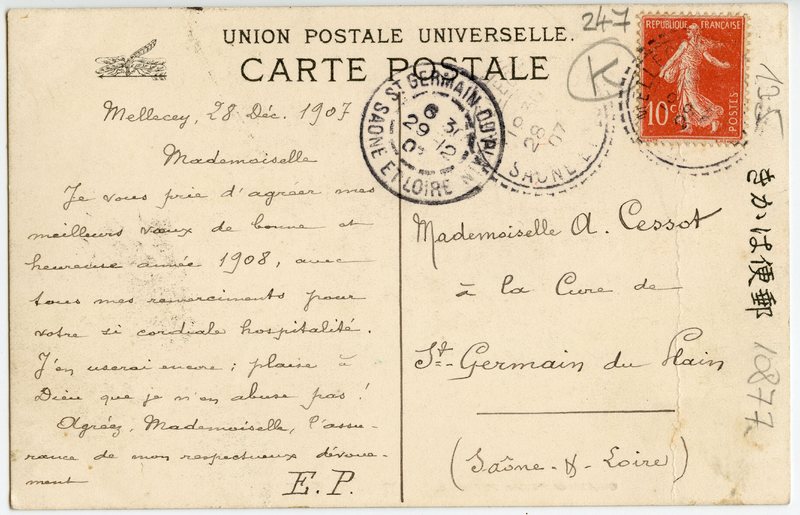 247
UNION POSTALE UNIVERSELLE.
CARTE POSTALE
K
REPUBLIQUE FRANÇAISE
10c
POSTES
ST GERMAIN DU PLAIN
6 31
29 12
07
SAONE ET LOIRE
28
07
SAONE ET
Mellecey, 28 Déc. 1907
Mademoiselle
Je vous prie d'agréer mes
meilleurs vœux de bonne et
heureuse année 1908, avec
tous mes remerciments pour
votre si cordiale hospitalité.
J'en userai encore ; plaise à
Dieu que je n'en abuse pas !
Agréez, Mademoiselle, l'assu-
rance de mon respectueux dévoue-
ment
E.P.
Mademoiselle A. Cessot
à la Cure de
St-Germain du Plain
(Saône-&-Loire)
きかは便郵
10877